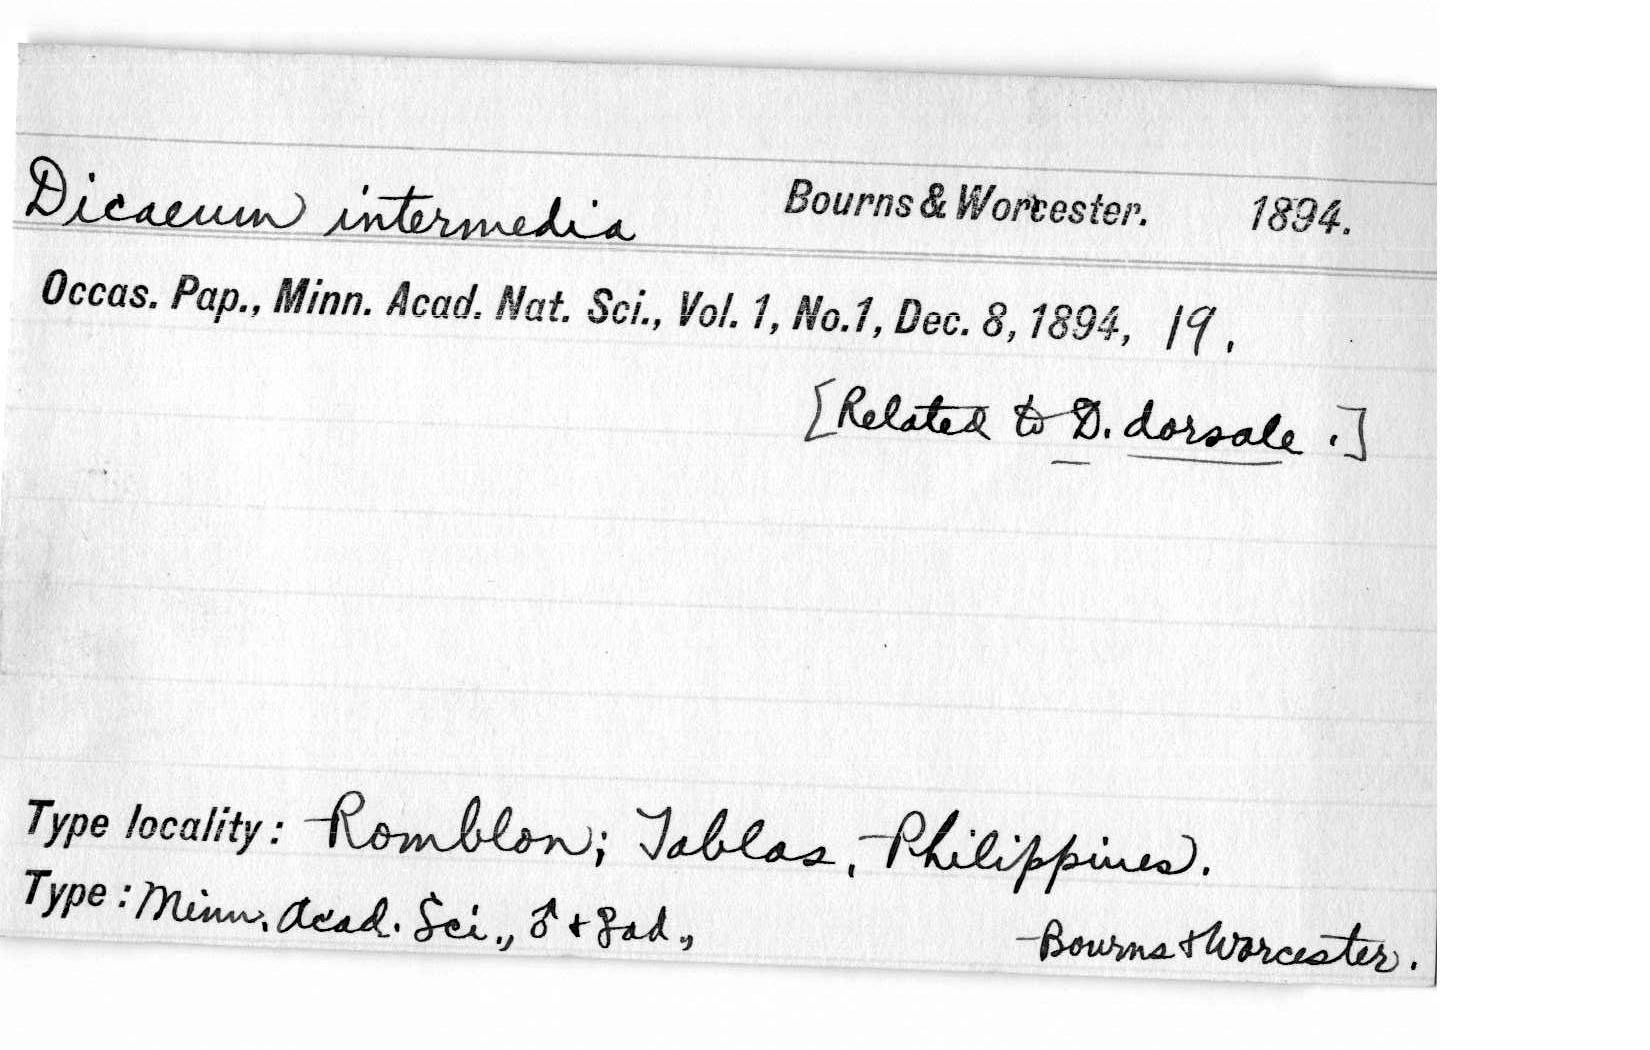 Dicaeum intermedia Bourns & Worcester. 1894.
Occas. Pap., Minn. Acad. Nat. Sci., Vol. 1, No. 1, Dec. 8, 1894, 19.
[Related to D. dorsale.]
Type locality: Romblon; Tablas, Philippines.
Type: Minn. Acad. Sci., ♂ + ♀ ad., Bourns & Worcester.